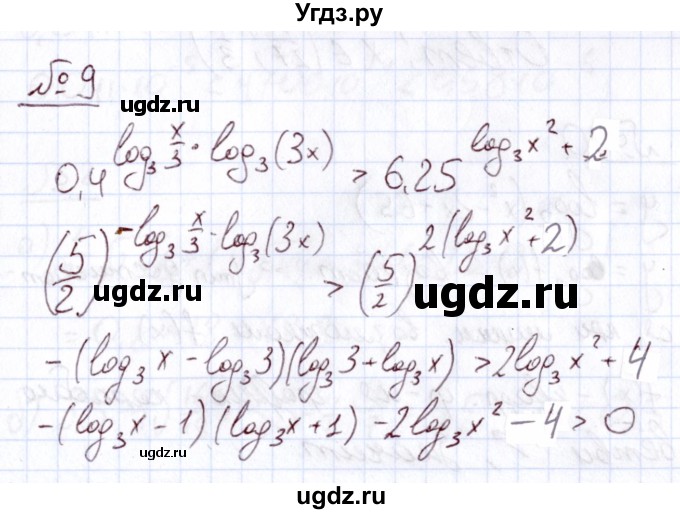 Угдз.ру
№ 9
ugdz.ru
ugdz.ru
0,4^(log₃ x/3 · log₃(3x)) > 6,25^(log₃x² + 2)
ugdz.ru
(5/2)^(-log₃ x/3 · log₃(3x)) > (5/2)^(2(log₃x² + 2))
ugdz.ru
ugdz.ru
-(log₃x - log₃3)(log₃3 + log₃x) > 2log₃x² + 4
ugdz.ru
-(log₃x - 1)(log₃x + 1) - 2log₃x² - 4 > 0
ugdz.ru
ugdz.ru